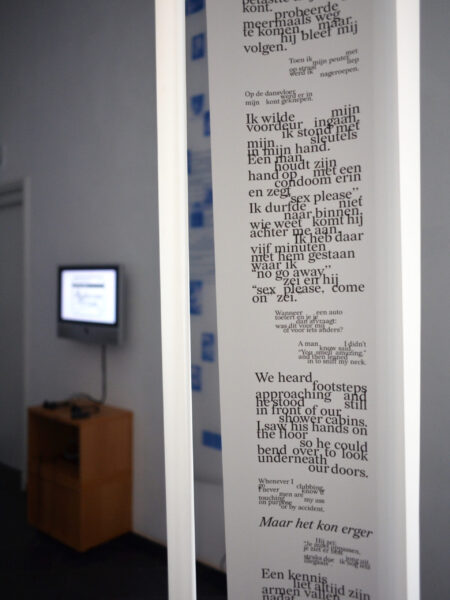 kont.
probeerde
meermaals weg
te komen maar
hij bleef mij
volgen.
Toen ik met
mijn peuter
op straat liep
werd ik nageroepen.
Op de dansvloer
werd er in
mijn kont geknepen.
Ik wilde mijn
voordeur ingaan,
mijn sleutels
ik stond met
in mijn hand.
Een man
houdt zijn
hand op met een
condoom erin
en zegt
"sex please"
Ik durfde niet
naar binnen,
wie weet komt hij
achter me aan.
Ik heb daar
vijf minuten
met hem gestaan
waar ik
"no go away"
zei en hij
"sex please, come
on" zei.
Wanneer een auto
toetert en je je
dan afvraagt:
was dit voor mij
of voor iets anders?
A man I didn't
know said:
"You smell amazing,"
and then leaned
in to sniff my neck.
We heard
footsteps
approaching and
he stood still
in front of our
shower cabins.
I saw his hands on
the floor
so he could
bend over to look
underneath
our doors.
Whenever I
go clubbing,
I never know if
men are
touching my ass
on purpose
or by accident.
Maar het kon erger
Hij zei:
Een kennis
liet altijd zijn
armen vallen